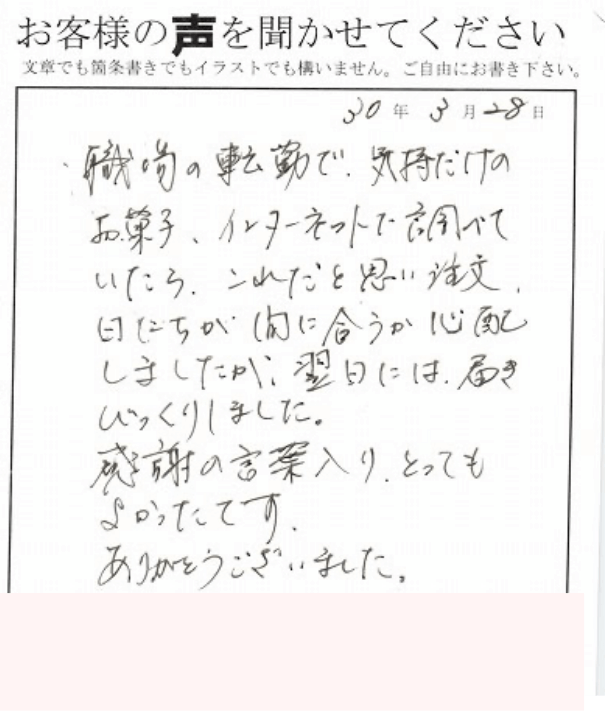 お客様の声を聞かせてください
文章でも箇条書きでもイラストでも構いません。ご自由にお書き下さい。
30年3月28日
職場の転勤で、気持だけの
お菓子、インターネットで調べて
いたら、これだと思い注文、
日にちが間に合うか心配
しましたが、翌日には、届き
びっくりしました。
感謝の言葉入り、とっても
よかったてす。
ありがとうございました。